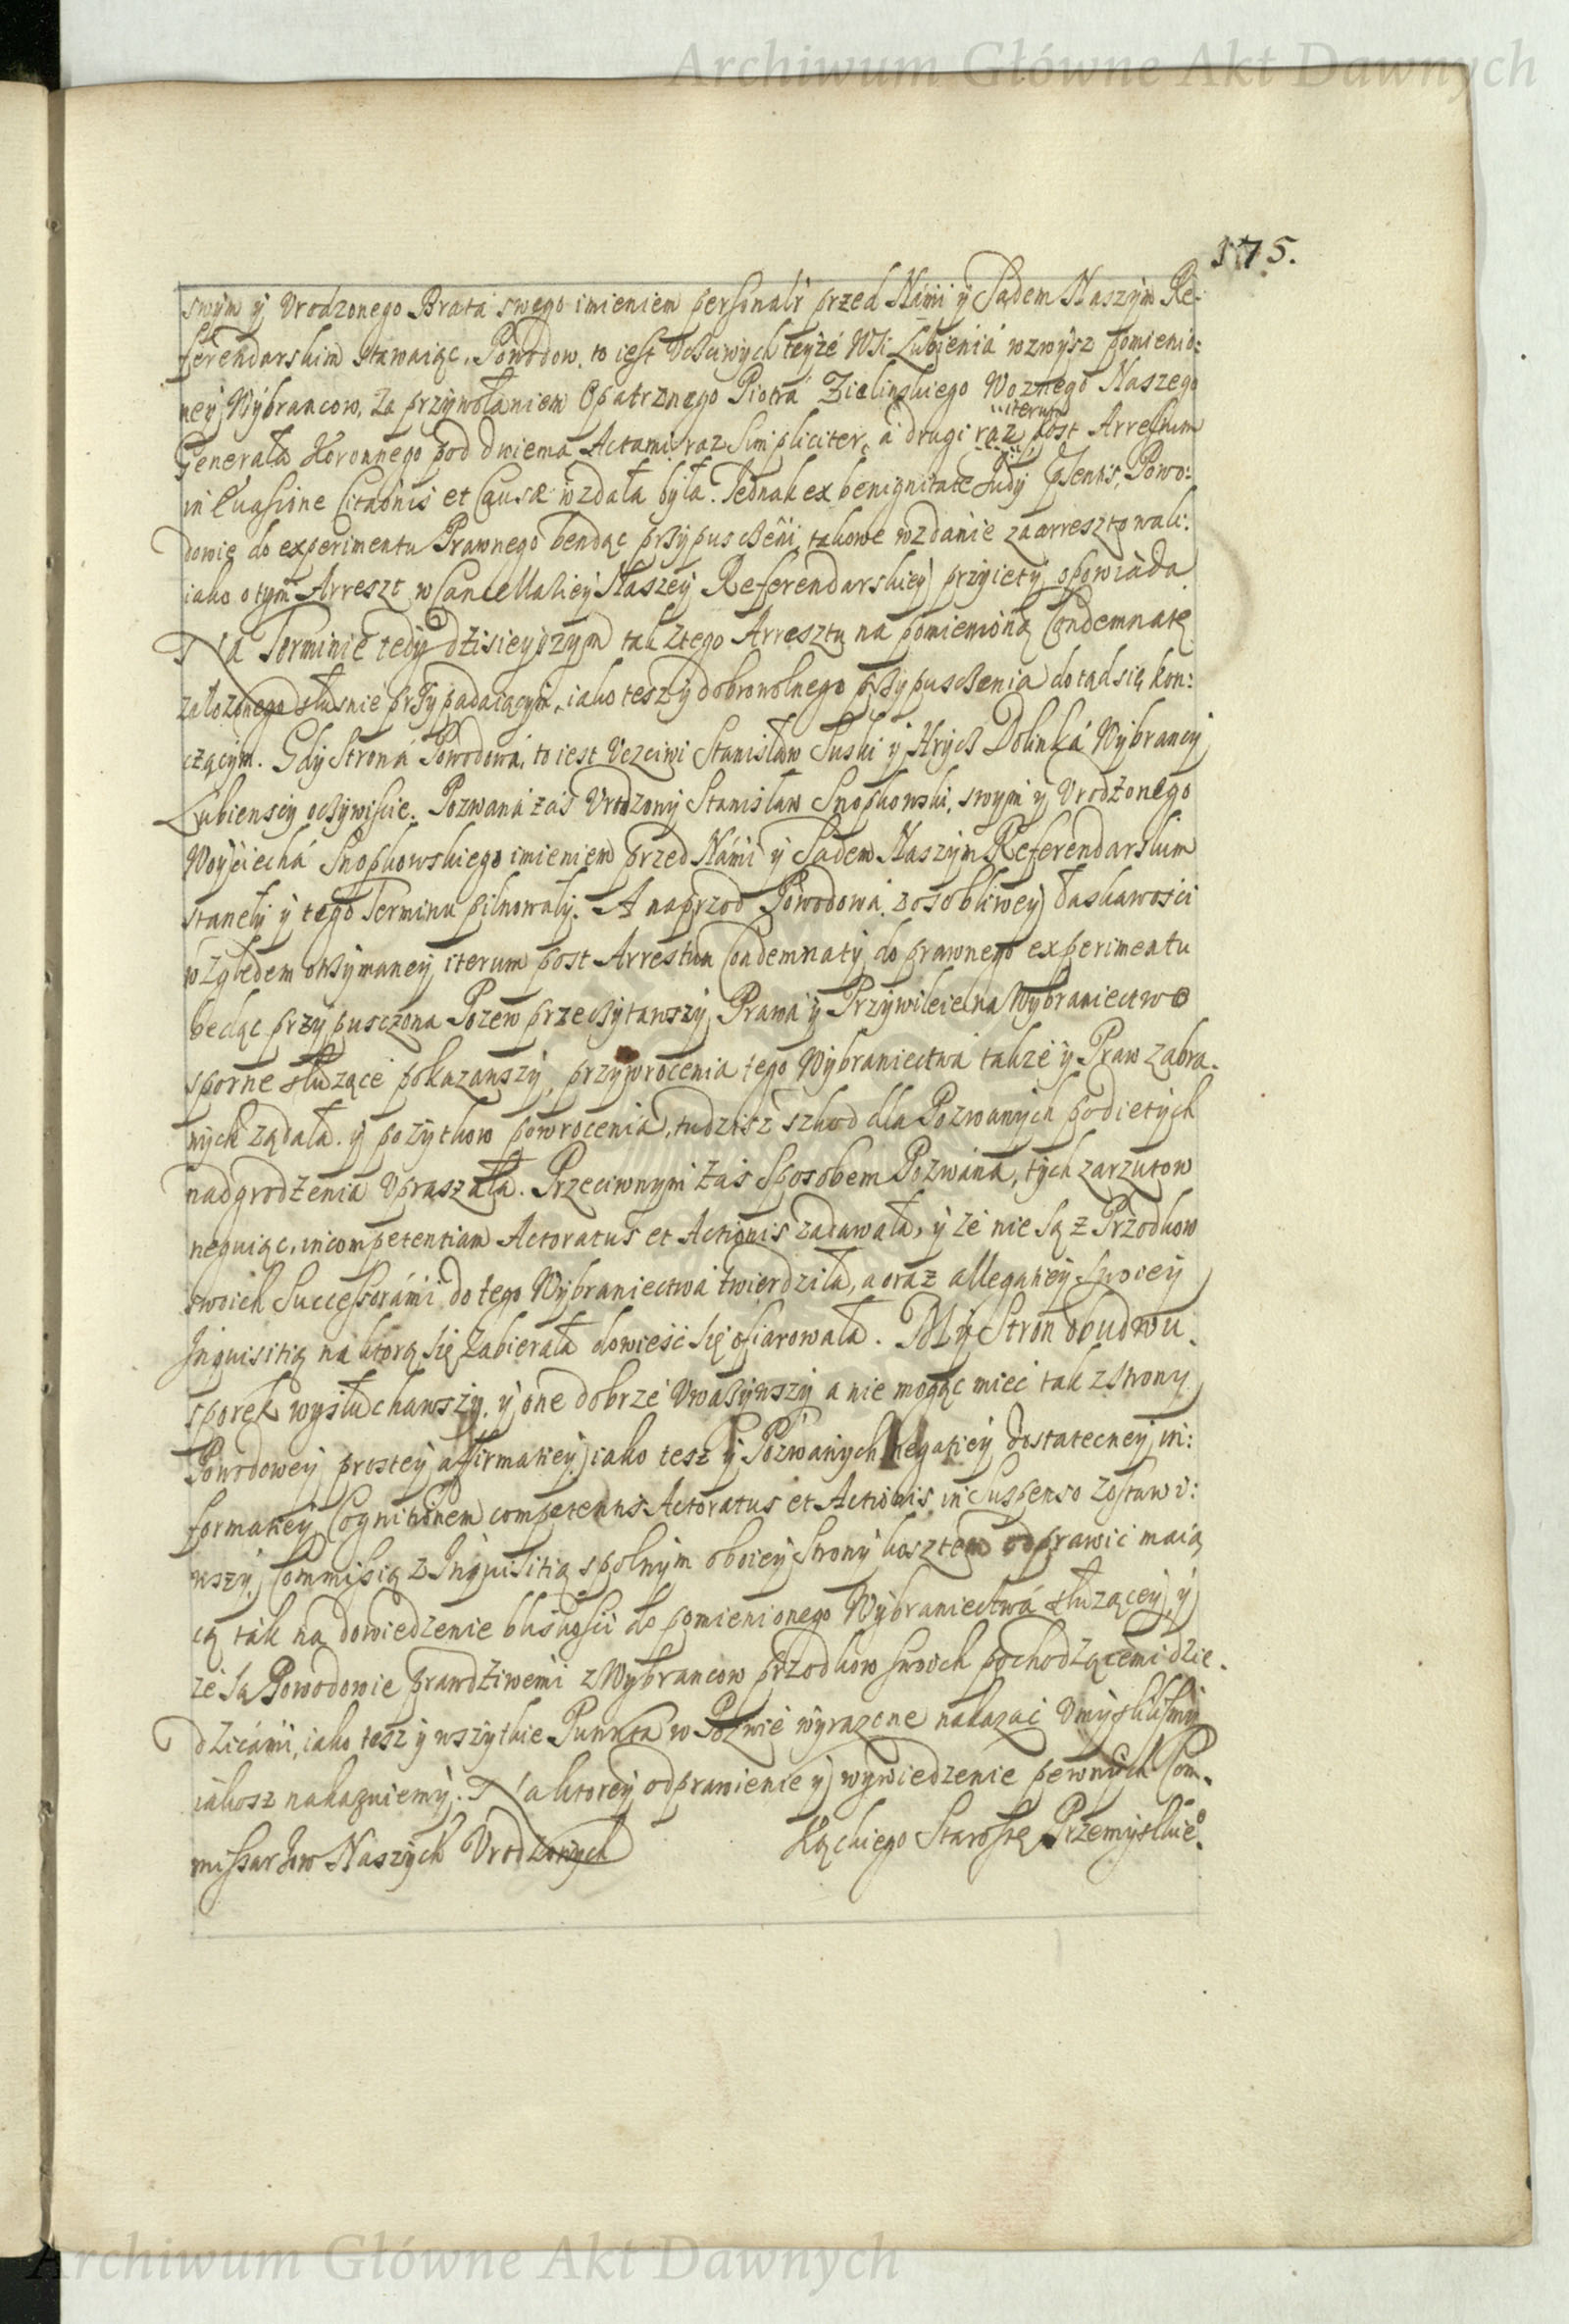 Archiwum Główne Akt Dawnych
175.
swym y Vrodzonego Brata swego imieniem personalr przed Námi y Sądem Naszym Re:
ferendarskim stawaiąc. Powodow, to iest Vcżciwych teyże Wśi Lubienia wzwysz pomienio:
ney Wybrancow, za przywołaniem Opatrznego Piotra Zielinskiego Woznego Naszego
iterum
Generała Koronnego pod dwiema Actami raz Simpliciter, á drugi raz post Arrestum
in Evasione Citaōnis et Causæ wzdała była. Jednak ex benignitate Judy Powo:
dowie do experimentu Prawnego bendąc przypuszczeni, takowe wzdanie zaarresztowali:
iako o tym Arreszt w Cancellariey Naszey Referendarskiey przyięty opowiada
Na Terminie tedy dzisieyszym tak z tego Arresztu na pomienioną Condemnatę
założonego słusnie przypadaiącym, iako tesz y dobrowolnego przypuszczenia dotąd się kon:
czącym. Gdy Strona Powodowa, to iest Vczciwi Stanisław Suski y Hrycz Dolinka Wybrancy
Lubienscy oczywiscie. Pozwana zaś Vrodzony Stanisław Snopkowski, swym y Vrodzonego
Woyciecha Snopkowskiego imieniem przed Námi y Sądem Naszym Referendarskim
stanęły y tego Terminu pilnowały. A naprzod Powodowa z osobliwey łaskawości
względem otrzymaney iterum post Arrestum Condemnaty do prawnego experimentu
będąc przypuszczona Pozew przeczytawszy, Prawa y Przywileie na Wybraniectwo
sporne służące pokazawszy, przywrocenia tego Wybraniectwa także y Praw zabra-
nych żądała. y pożytkow powrocenia, tudzisz szkod dla Pozwanych podiętych
nadgrodzenia Vpraszała. Przeciwnym zaś Sposobem Pozwana, tych zarzutow
neguiąc, incompetentiam Actoratus et Actionis zadawała, y że nie są z Przodkow
swoich Successorámi do tego Wybraniectwa twierdziła, a oraz allegatiey swoiey
Inquisitią na ktorą się zabierała dowieść się ofiarowała. My Stron obudwu
sporek wysłuchawszy, y one dobrze Vważywszy a nie mogąc mieć tak z strony
Powodowey prostey affirmatiey, iako tesz y Pozwanych negatiey dostateczney in:
formatiey Cognitionem competentis Actoratus et Actionis in Suspenso zostawi:
wszy, Commissią z Inquisitią spolnym oboiey Strony kosztem odprawić maią
cą tak na dowiedzenie bliskości do pomienionego Wybraniectwá służącey, y
że są Powodowie prawdziwemi z Wybrancow przodkow swoich pochodzącemi dzie-
dzicámi, iako tesz y wszytkie Puncta w Pozwie wyrazone nakazać Vmyslilismy
iakosz nakazuiemy. Na ktorey odprawienie y wywiedzenie pewnych Com-
missarzow Naszych Vrodzonych Kąckiego Starostę Przemyskie°.
Archiwum Główne Akt Dawnych